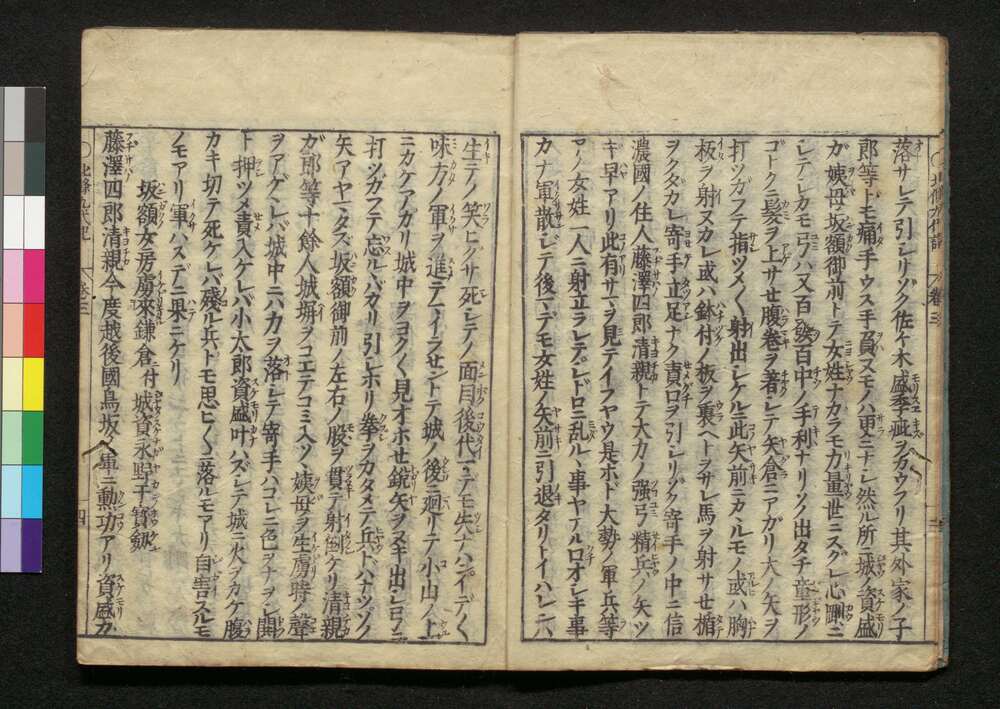 落サレテ引シリゾク佐々木盛季疵ヲカウフリ其外家ノ子
郎等トモ痛手ウス手負スモノハ更ニナシ然ル所ニ城ノ資盛
ガ姨母坂額御前トテ女姓ナカラモ力量世ニスグレ心剛ニ
シテシカモ弓ハ又百發百中ノ手利ナリソノ出タチ童形ノ
ゴトクニ髪ヲ上サセ腹巻ヲ著シテ矢倉ニアガリ大ノ矢ヲ
打ツガフテ指ツメ〱射出シケルニ此矢前ニカヽルモノ或ハ胸
板ヲ射ヌカレ或ハ鉢付ノ板ヲ裏ヘトヲサレ馬ヲ射サセ楯
ヲクダカレ寄手立足ナク責口ヲ引シリゾク寄手ノ中ニ信
濃國ノ住人藤澤四郎清親トテ大力ノ強弓精兵ノ矢ツ
キ早アリ此有サマヲ見テイフヤウ是ホド大勢ノ軍兵等
マノ女姓一人ニ射立ラレテシドロニ乱ルヽ事ヤアルロオシキ事
カナ軍散シテ後マデモ女姓ノ矢前ニ引退タリトイハレンハ
生テノ笑ヒグサ死シテノ面目後代マデモ失ナハンイデ〱
味方ノ軍ヲ進テマイラセントテ城ノ後ニ廻リテ小山ノ上
ニカケアガリ城中ヲヨク〱見オホセ鏡矢ヲヌキ出シヒロノ
打ツガフテ忘ルバカリ引シホリ拳ヲカタメテ兵トハナツソノ
矢アヤマタズ坂額御前ノ左右ノ股ヲ貫テ射倒ケリ清親
ガ郎等十餘人城塀ヲコエテコミ入ツヽ姨母ヲ生虜時ノ聲
ヲアゲシカバ城中ニハ力ヲ落シテ寄手ハコレニ色ヲナヲシ閧
ト押ツメ責入ケレバ小太郎資盛叶ハズシテ城ニ火ヲカケ腹
カキ切テ死ケレバ殘ル兵トモ思ヒ〱ニ落ルモアリ自害スルモ
ノモアリ軍ハステニ果ニケリ
坂額女房虜來鎌倉付城資永野干寳劔
藤澤四郎清親今度越後國鳥坂ノ軍ニ勲功アリ資盛ガ